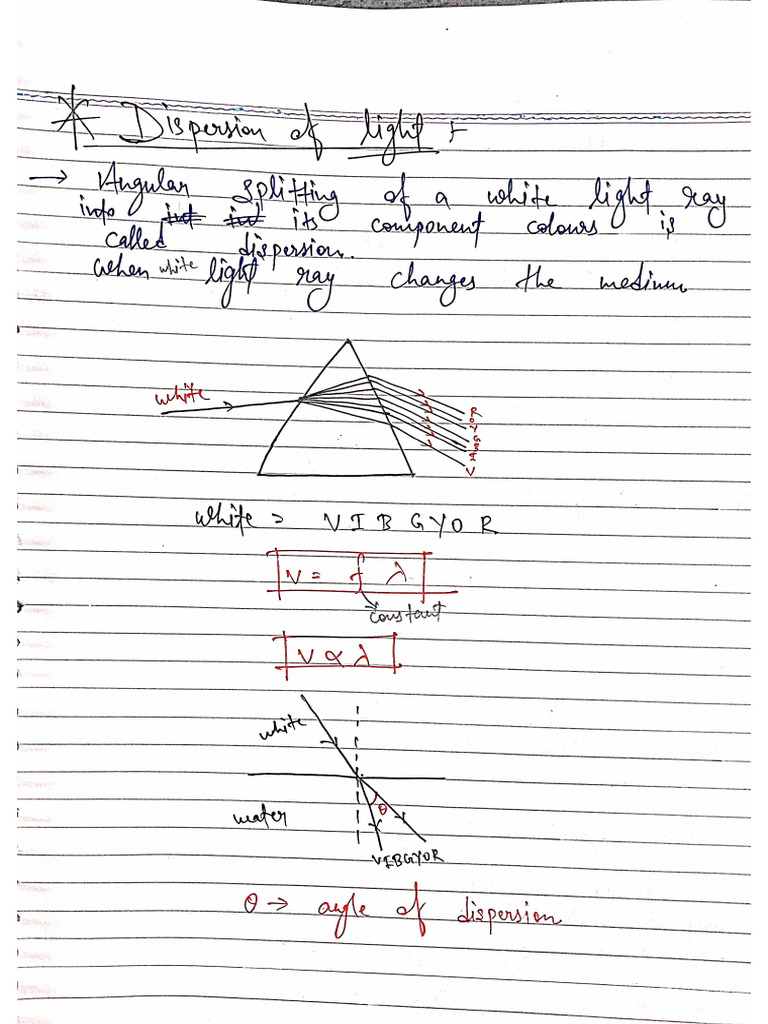 * Dispersion of light :-
→ Angular splitting of a white light ray
into its component colours is
called dispersion.
when white light ray changes the medium
white
R
O
Y
G
B
I
V
white = VIBGYOR
V = f λ
constant
V ∝ λ
white
water
θ
VIBGYOR
θ → angle of dispersion